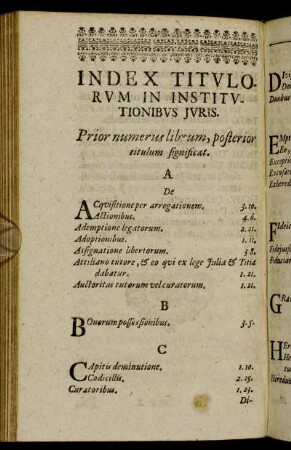 INDEX TITVLO-
RVM IN INSTITV-
TIONIBVS JVRIS.
Prior numerus librum, posterior
titulum significat.
A
De
ACqvisitione per arrogationem. 3.10.
Actionibus. 4.6.
Ademptione legatorum. 2.21.
Adoptionibus. 1.11.
Assignatione libertorum. 3 8.
Attiliano tutore, & eo qvi ex lege Julia & Titia
dabatur. 1.21.
Auctoritas tutorum vel curatorum. 1.21.
B
BOnorum possessionibus. 3.5.
C
CApitis deminutione. 1.10.
Codicillis. 2.25.
Curatoribus. 1.23.
Di-